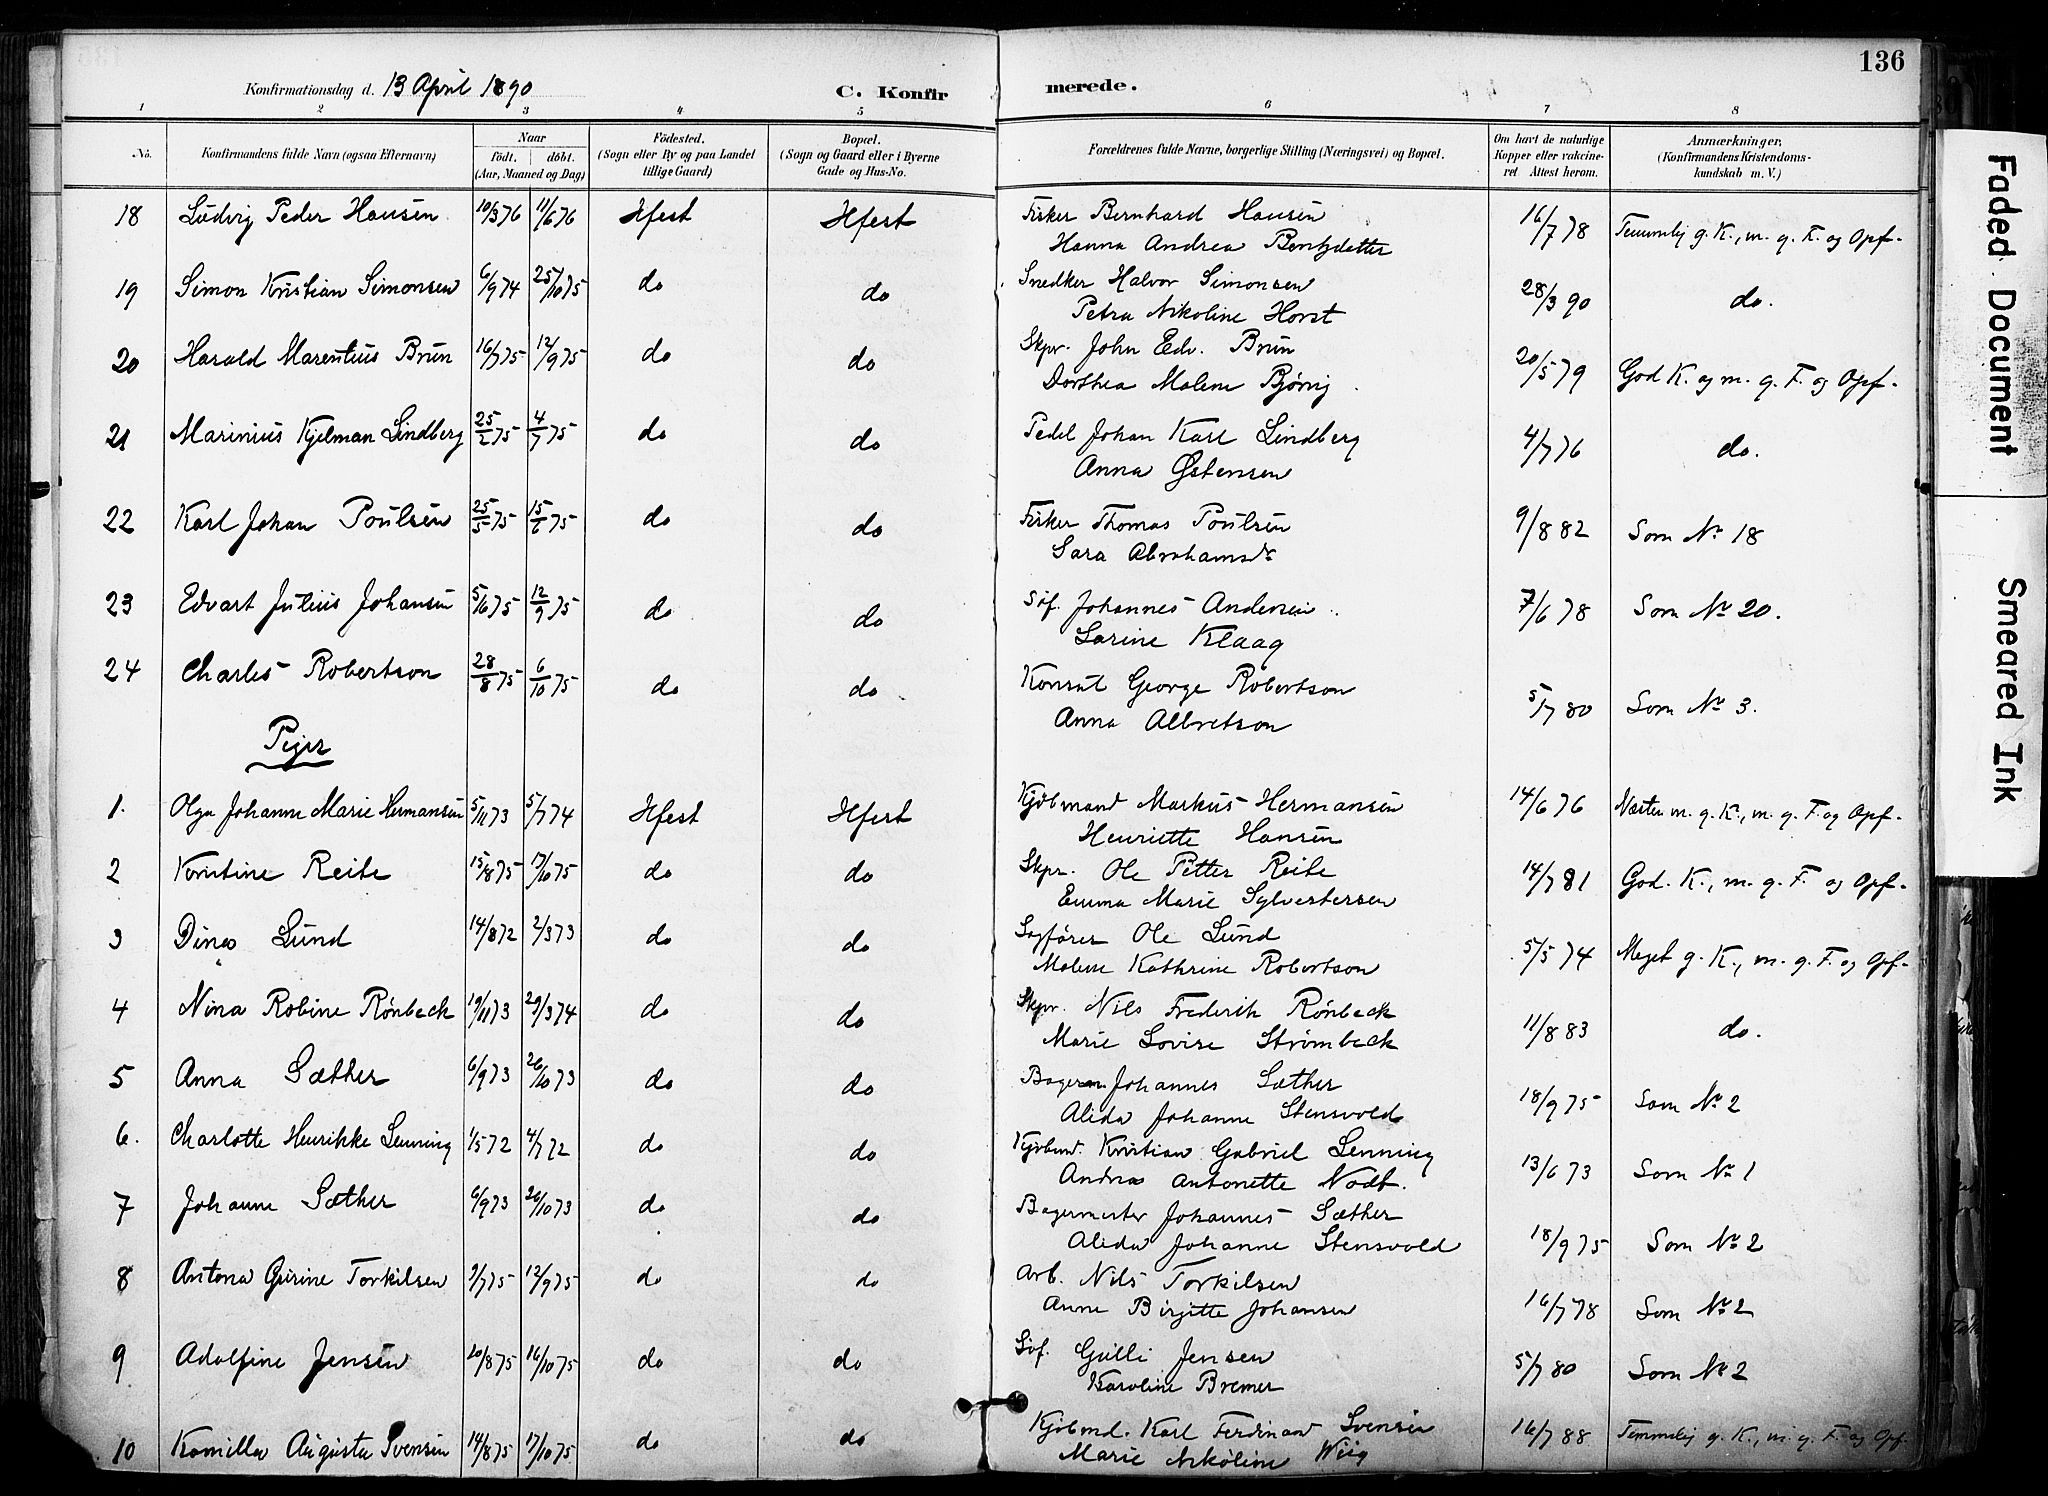 136
Konfirmationsdag d. 13 April 1890 C. Konfirmerede.
1 2 3 4 5 6 7 8
No. Konfirmandens fulde Navn (ogsaa Efternavn) Naar födt. döbt. (Aar, Maaned og Dag) Födested. (Sogn eller By og paa Landet tillige Gaard) Bopæl. (Sogn og Gaard eller i Byerne Gade og Hus-No. Forældrenes fulde Navne, borgerlige Stilling (Næringsvei) og Bopæl. Om havt de naturlige Kopper eller vakcineret Attest herom. Anmærkninger, (Konfirmandens Kristendomskundskab m. V.)
18 Ludvig Peder Hansen 10/3 76 11/6 76 Hfest Hfest Fisker Bernhard Hansen 16/7 78 Temmelig g. K., m. g. F. og Opf.
Hanna Andrea Bentzdatter
19 Simon Kristian Simonsen 6/9 74 25/10 75 do do Snedker Halvor Simonsen 28/3 90 do.
Petra Nikoline Horst
20 Harald Marentius Brun 16/7 75 12/9 75 do do Skpr. John Edv. Brun 20/5 79 God K. og m. g. F. og Opf.
Dorthea Malene Bjørvig
21 Marinius Kjelman Lindberg 25/2 75 4/7 75 do do Pedel Johan Karl Lindberg 4/7 76 do.
Anna Østensen
22 Karl Johan Poulsen 25/5 75 15/6 75 do do Fisker Thomas Poulsen 9/8 82 Som No 18
Sara Abrahamsdr
23 Edvart Julius Johansen 5/6 75 12/9 75 do do Söf. Johannes Andersen 7/6 78 Som No 20.
Sarine Klaag
24 Charles Robertson 28/8 75 6/10 75 do do Konsul George Robertson 5/7 80 Som No 3.
Anna Albretson
Piger
1. Olga Johanne Marie Hermansen 5/11 73 5/7 74 Hfest Hfest Kjöbmand Markus Hermansen 14/6 76 Næsten m. g. K., m. g. F. og Opf.
Henriette Hansen
2 Kristine Reite 15/8 75 17/10 75 do do Skpr. Ole Petter Reite 14/7 81 God. K., m. g. F. og Opf.
Emma Marie Sylvestersen
3 Dina Lund 14/8 72 2/3 73 do do Sagfører Ole Lund 5/5 74 Meget g. K., m. g. F. og Opf.
Malene Kathrine Robertson
4 Nina Robine Rønbeck 19/11 73 29/3 74 do do Skpr. Nils Frederik Rönbeck 11/8 83 do.
Marie Lovise Strømbeck
5 Anna Sæther 6/9 73 26/10 73 do do Bagerm Johannes Sæther 18/9 75 Som No 2
Alida Johanne Stensvold
6. Charlotte Henrikke Lenning 1/5 72 4/7 72 do do Kjøbmd. Kristian Gabriel Lenning 13/6 73 Som No 1
Andrea Antonette Nodt.
7 Johanne Sæther 6/9 73 26/10 73 do do Bagermester Johannes Sæther 18/9 75 Som No 2
Alida Johanne Stensvold
8 Antona Gurine Torkilsen 3/7 75 12/9 75 do do Arb. Nils Torkilsen 16/7 78 Som No 2
Anne Birgitte Johansen
9 Adolfine Jensen 20/8 75 16/10 75 do do Söf. Gulli Jensen 5/7 80 Som No 2
Karoline Bremer
10 Kamilla Augusta Svensen 14/8 75 17/10 75 do do Kjöbmd. Karl Ferdinand Svensen 16/7 88 Temmelig g. K., m. g. F. og Opf.
Marie Nikoline Wiig
Faded Document
Smeared Ink